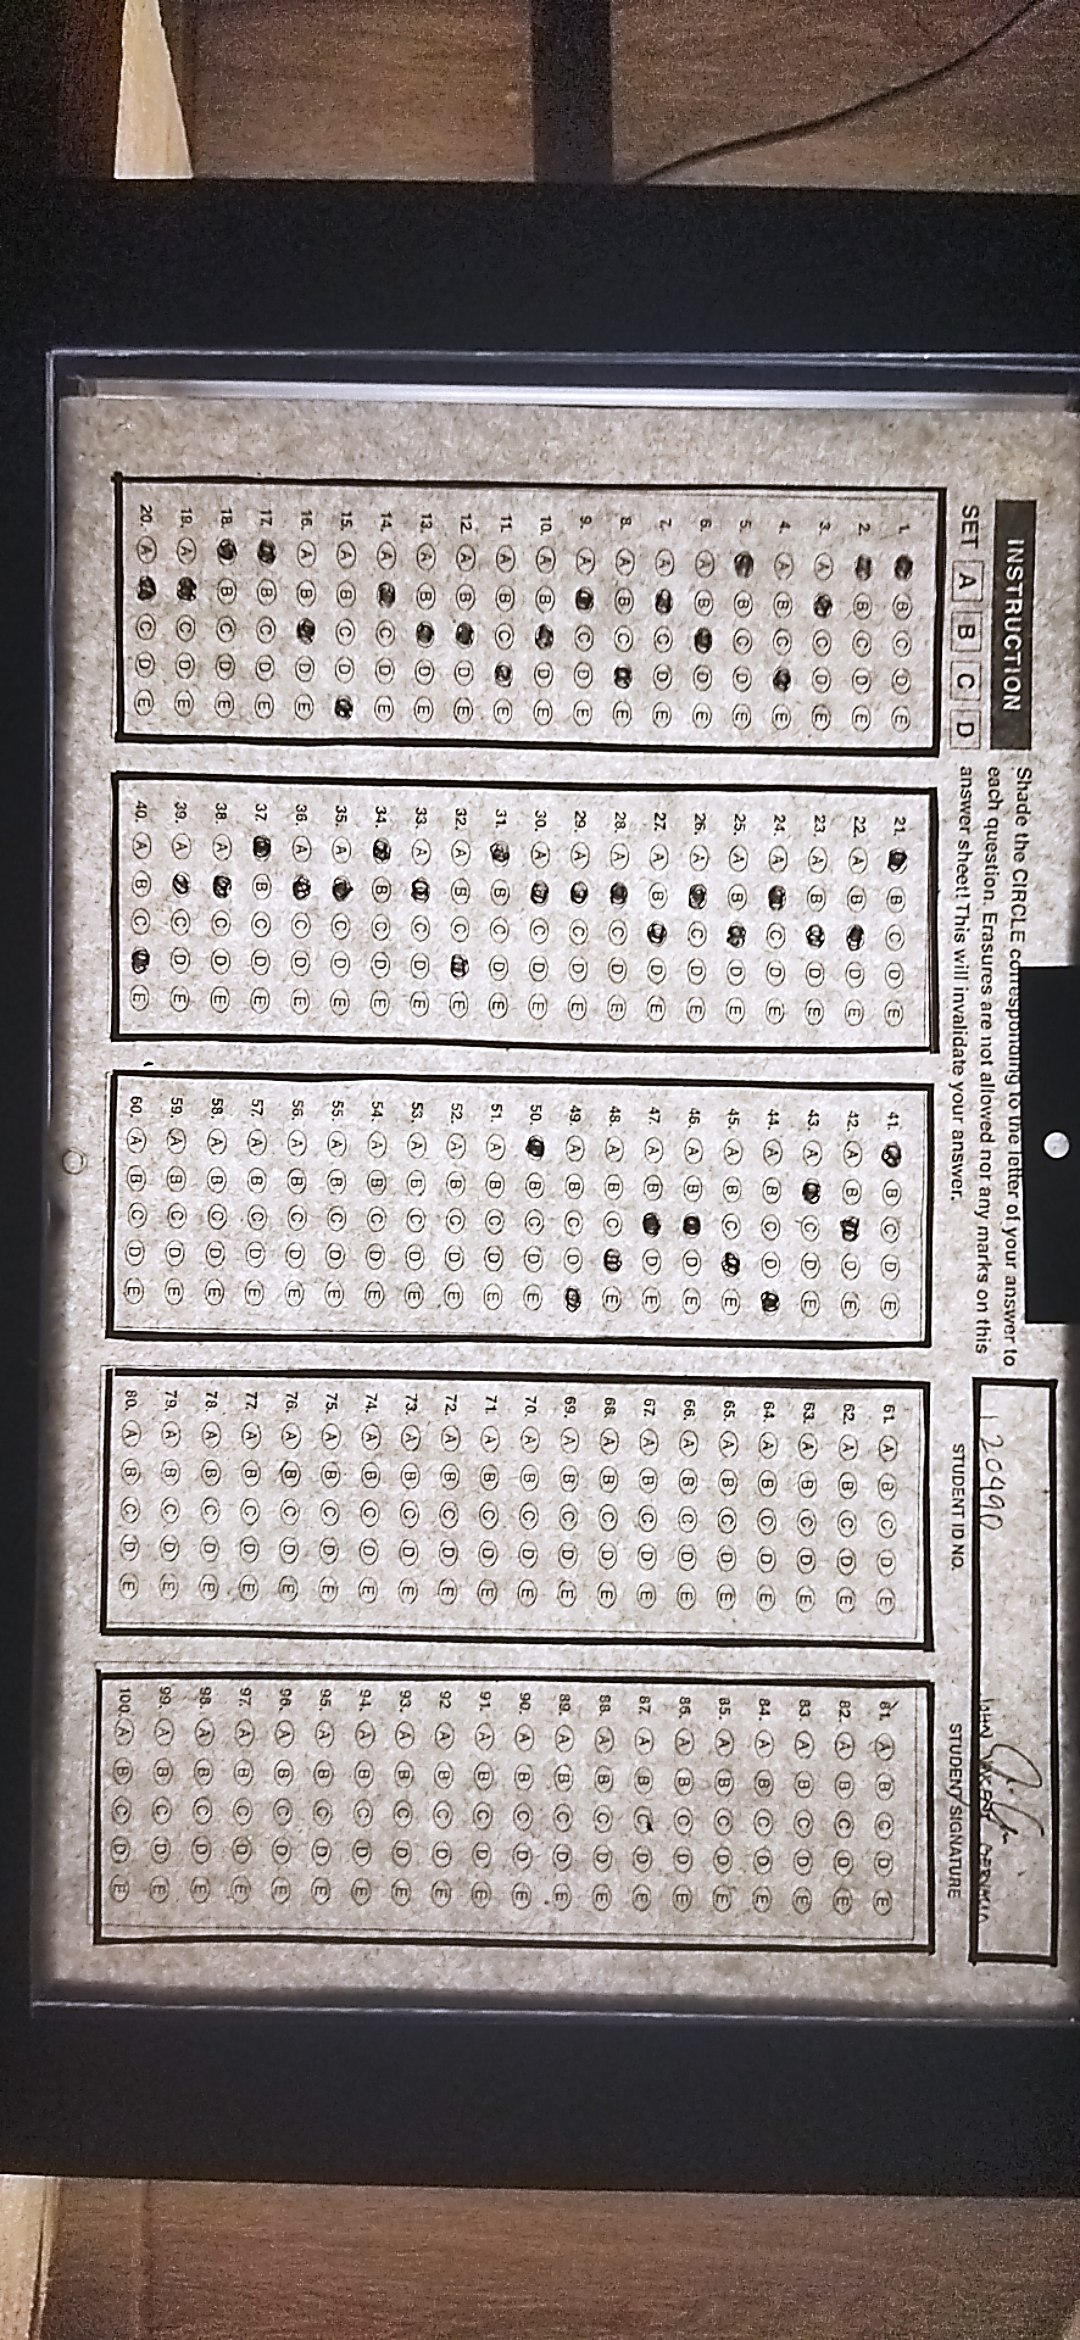 INSTRUCTION
Shade the CIRCLE corresponding to the letter of your answer to
each question. Erasures are not allowed nor any marks on this
answer sheet! This will invalidate your answer.
SET A B C D
120490
JOHN
STUDENT ID NO.
STUDENT SIGNATURE
1. B C D E
2. B C D E
3. A C D E
4. A B C E
5. B C D E
6. A B D E
7. A C D E
8. A B C E
9. A C D E
10. A B D E
11. A B C E
12. A B D E
13. A B D E
14. A C D E
15. A B C D
16. A B D E
17. B C D E
18. B C D E
19. A C D E
20. A C D E
21. B C D E
22. A B D E
23. A B D E
24. A C D E
25. A B D E
26. A C D E
27. A B D E
28. A C D E
29. A C D E
30. A C D E
31. B C D E
32. A B C E
33. A C D E
34. B C D E
35. A C D E
36. A C D E
37. B C D E
38. A C D E
39. A C D E
40. A B C E
41. B C D E
42. A B D E
43. A C D E
44. A B C D
45. A B C E
46. A B D E
47. A B D E
48. A B C E
49. A B C D
50. B C D E
51. A B C D E
52. A B C D E
53. A B C D E
54. A B C D E
55. A B C D E
56. A B C D E
57. A B C D E
58. A B C D E
59. A B C D E
60. A B C D E
61. A B C D E
62. A B C D E
63. A B C D E
64. A B C D E
65. A B C D E
66. A B C D E
67. A B C D E
68. A B C D E
69. A B C D E
70. A B C D E
71. A B C D E
72. A B C D E
73. A B C D E
74. A B C D E
75. A B C D E
76. A B C D E
77. A B C D E
78. A B C D E
79. A B C D E
80. A B C D E
81. A B C D E
82. A B C D E
83. A B C D E
84. A B C D E
85. A B C D E
86. A B C D E
87. A B C D E
88. A B C D E
89. A B C D E
90. A B C D E
91. A B C D E
92 A B C D E
93. A B C D E
94. A B C D E
95. A B C D E
96. A B C D E
97. A B C D E
98. A B C D E
99. A B C D E
100. A B C D E